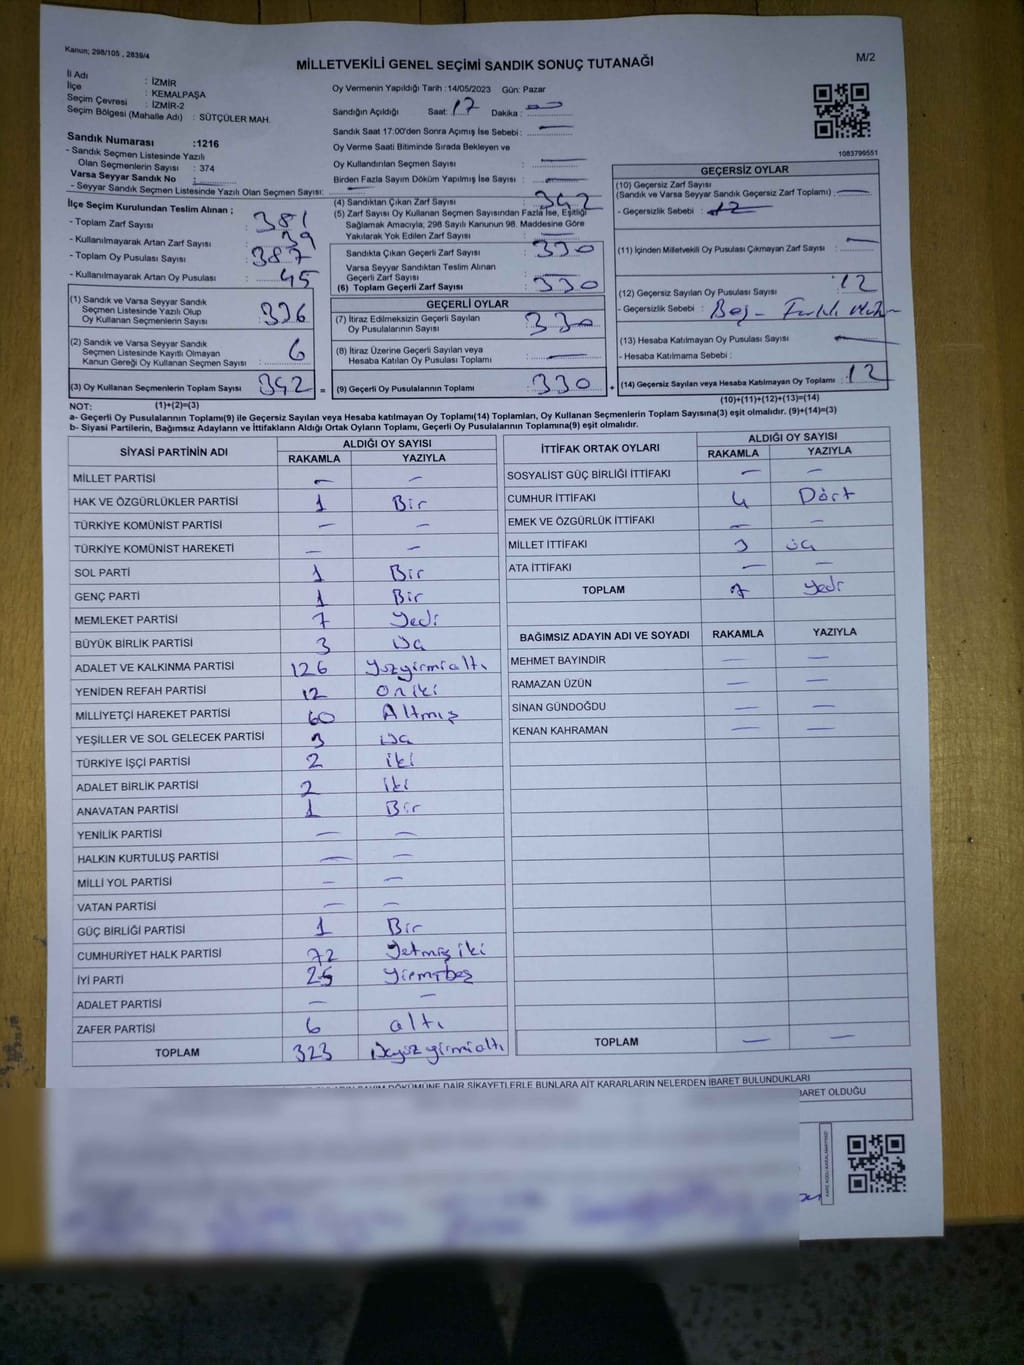 Kanun; 298/105 , 2839/4
MİLLETVEKİLİ GENEL SEÇİMİ SANDIK SONUÇ TUTANAĞI
M/2
İl Adı : İZMİR
İlçe : KEMALPAŞA
Seçim Çevresi : İZMİR-2
Seçim Bölgesi (Mahalle Adı) : SÜTÇÜLER MAH.
Sandık Numarası :1216
- Sandık Seçmen Listesinde Yazılı
Olan Seçmenlerin Sayısı : 374
Varsa Seyyar Sandık No :
- Seyyar Sandık Seçmen Listesinde Yazılı Olan Seçmen Sayısı:
Oy Vermenin Yapıldığı Tarih :14/05/2023 Gün: Pazar
Sandığın Açıldığı Saat: 17 Dakika :
Sandık Saat 17:00'den Sonra Açımış İse Sebebi :
Oy Verme Saati Bitiminde Sırada Bekleyen ve
Oy Kullandırılan Seçmen Sayısı :
Birden Fazla Sayım Döküm Yapılmış İse Sayısı :
1083799551
İlçe Seçim Kurulundan Teslim Alınan ;
- Toplam Zarf Sayısı : 381
- Kullanılmayarak Artan Zarf Sayısı : 39
- Toplam Oy Pusulası Sayısı : 387
- Kullanılmayarak Artan Oy Pusulası : 45
(1) Sandık ve Varsa Seyyar Sandık
Seçmen Listesinde Yazılı Olup
Oy Kullanan Seçmenlerin Sayısı : 336
(2) Sandık ve Varsa Seyyar Sandık
Seçmen Listesinde Kayıtlı Olmayan
Kanun Gereği Oy Kullanan Seçmen Sayısı : 6
(3) Oy Kullanan Seçmenlerin Toplam Sayısı : 342 =
(1)+(2)=(3)
(4) Sandıktan Çıkan Zarf Sayısı : 342
(5) Zarf Sayısı Oy Kullanan Seçmen Sayısından Fazla İse, Eşitliği
Sağlamak Amacıyla; 298 Sayılı Kanunun 98. Maddesine Göre
Yakılarak Yok Edilen Zarf Sayısı :
Sandıkta Çıkan Geçerli Zarf Sayısı : 330
Varsa Seyyar Sandıktan Teslim Alınan
Geçerli Zarf Sayısı :
(6) Toplam Geçerli Zarf Sayısı : 330
GEÇERLİ OYLAR
(7) İtiraz Edilmeksizin Geçerli Sayılan
Oy Pusulalarının Sayısı : 330
(8) İtiraz Üzerine Geçerli Sayılan veya
Hesaba Katılan Oy Pusulası Toplamı :
(9) Geçerli Oy Pusulalarının Toplamı : 330 +
GEÇERSİZ OYLAR
(10) Geçersiz Zarf Sayısı
(Sandık ve Varsa Seyyar Sandık Geçersiz Zarf Toplamı) :
- Geçersizlik Sebebi : 12
(11) İçinden Milletvekili Oy Pusulası Çıkmayan Zarf Sayısı :
(12) Geçersiz Sayılan Oy Pusulası Sayısı : 12
- Geçersizlik Sebebi : Boş - Farklı
(13) Hesaba Katılmayan Oy Pusulası Sayısı :
- Hesaba Katılmama Sebebi :
(14) Geçersiz Sayılan veya Hesaba Katılmayan Oy Toplamı : 12
(10)+(11)+(12)+(13)=(14)
NOT:
a- Geçerli Oy Pusulalarının Toplamı(9) ile Geçersiz Sayılan veya Hesaba katılmayan Oy Toplamı(14) Toplamları, Oy Kullanan Seçmenlerin Toplam Sayısına(3) eşit olmalıdır. (9)+(14)=(3)
b- Siyasi Partilerin, Bağımsız Adayların ve İttifakların Aldığı Ortak Oyların Toplamı, Geçerli Oy Pusulalarının Toplamına(9) eşit olmalıdır.
SİYASİ PARTİNİN ADI ALDIĞI OY SAYISI
RAKAMLA YAZIYLA
MİLLET PARTİSİ – –
HAK VE ÖZGÜRLÜKLER PARTİSİ 1 Bir
TÜRKİYE KOMÜNİST PARTİSİ – –
TÜRKİYE KOMÜNİST HAREKETİ – –
SOL PARTİ 1 Bir
GENÇ PARTİ 1 Bir
MEMLEKET PARTİSİ 7 Yedi
BÜYÜK BİRLİK PARTİSİ 3 üç
ADALET VE KALKINMA PARTİSİ 126 Yüzyirmialtı
YENİDEN REFAH PARTİSİ 12 Oniki
MİLLİYETÇİ HAREKET PARTİSİ 60 Altmış
YEŞİLLER VE SOL GELECEK PARTİSİ 3 üç
TÜRKİYE İŞÇİ PARTİSİ 2 iki
ADALET BİRLİK PARTİSİ 2 iki
ANAVATAN PARTİSİ 1 Bir
YENİLİK PARTİSİ – –
HALKIN KURTULUŞ PARTİSİ – –
MİLLİ YOL PARTİSİ – –
VATAN PARTİSİ – –
GÜÇ BİRLİĞİ PARTİSİ 1 Bir
CUMHURİYET HALK PARTİSİ 72 Yetmiş iki
İYİ PARTİ 25 Yirmibeş
ADALET PARTİSİ – –
ZAFER PARTİSİ 6 altı
TOPLAM 323 üçyüzyirmialtı
İTTİFAK ORTAK OYLARI ALDIĞI OY SAYISI
RAKAMLA YAZIYLA
SOSYALİST GÜÇ BİRLİĞİ İTTİFAKI – –
CUMHUR İTTİFAKI 4 Dört
EMEK VE ÖZGÜRLÜK İTTİFAKI – –
MİLLET İTTİFAKI 3 üç
ATA İTTİFAKI – –
TOPLAM 7 Yedi
BAĞIMSIZ ADAYIN ADI VE SOYADI RAKAMLA YAZIYLA
MEHMET BAYINDIR – –
RAMAZAN ÜZÜN – –
SİNAN GÜNDOĞDU – –
KENAN KAHRAMAN – –
TOPLAM – –
DÖKÜMÜNE DAİR ŞİKAYETLERLE BUNLARA AİT KARARLARIN NELERDEN İBARET BULUNDUKLARI
BARET OLDUĞU